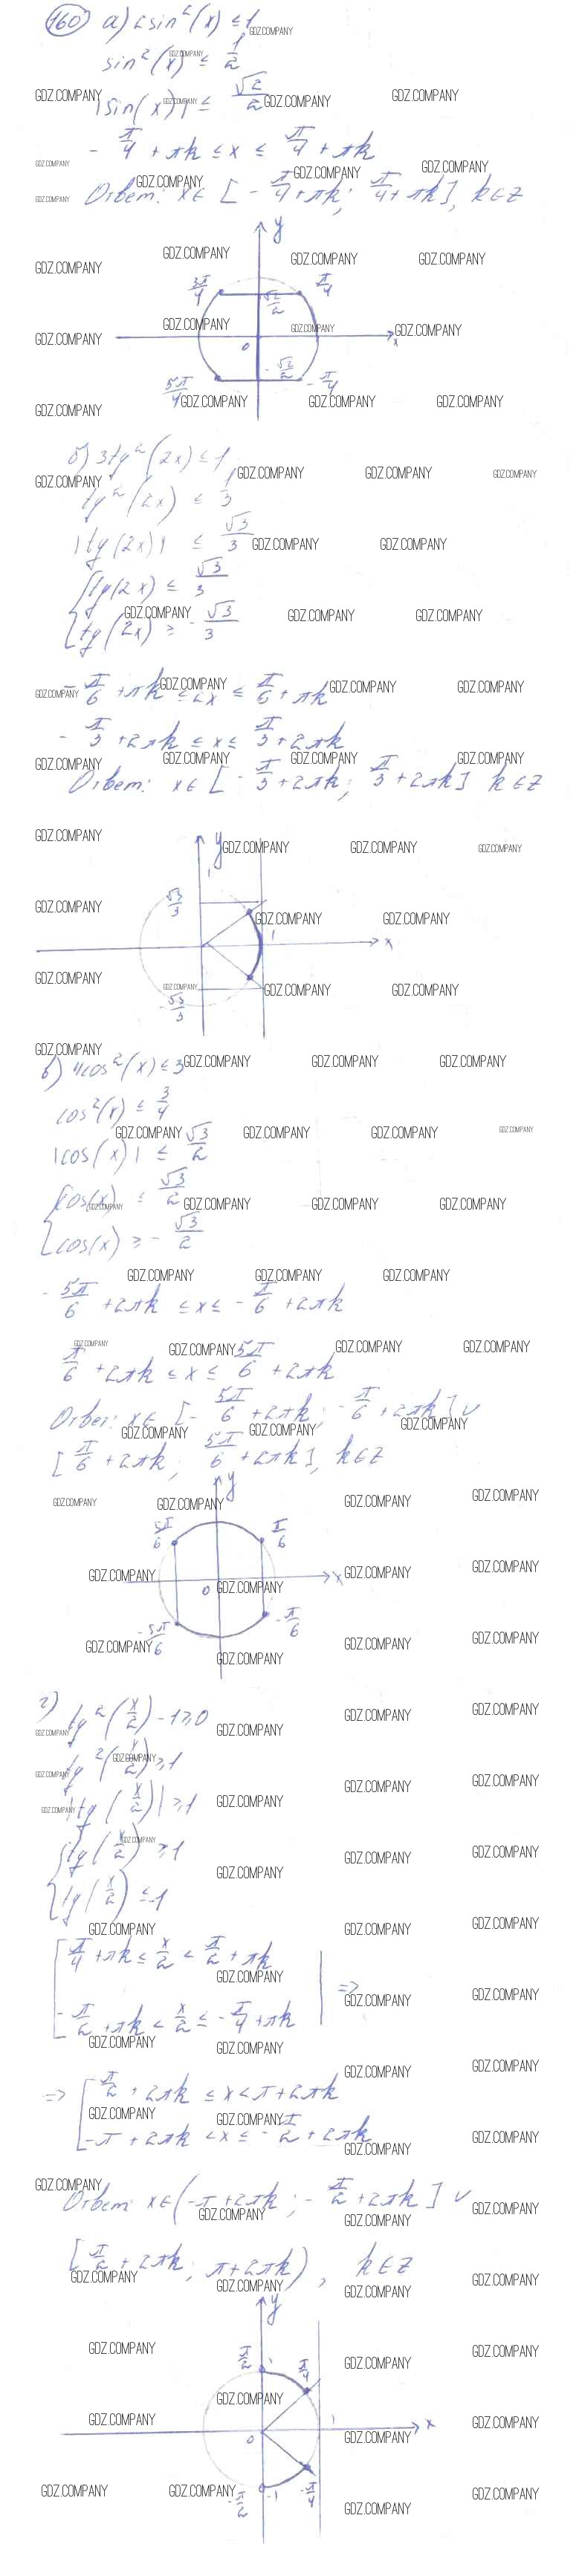 160 а) 2sin²(x) ≤ 1
sin²(x) ≤ 1/2
|sin(x)| ≤ √2/2
- π/4 + πk ≤ x ≤ π/4 + πk
Ответ: x ∈ [- π/4 + πk; π/4 + πk], k ∈ Z
y
3π/4 π/4
√2/2
0 x
- √2/2
5π/4 - π/4
б) 3tg²(2x) ≤ 1
tg²(2x) ≤ 1/3
|tg(2x)| ≤ √3/3
{tg(2x) ≤ √3/3
{tg(2x) ≥ - √3/3
- π/6 + πk ≤ 2x ≤ π/6 + πk
- π/3 + 2πk ≤ x ≤ π/3 + 2πk
Ответ: x ∈ [- π/3 + 2πk; π/3 + 2πk] k ∈ Z
y
1
√3/3
1 x
- √3/3
в) 4cos²(x) ≤ 3
cos²(x) ≤ 3/4
|cos(x)| ≤ √3/2
{cos(x) ≤ √3/2
{cos(x) ≥ - √3/2
- 5π/6 + 2πk ≤ x ≤ - π/6 + 2πk
π/6 + 2πk ≤ x ≤ 5π/6 + 2πk
Ответ: x ∈ [- 5π/6 + 2πk; - π/6 + 2πk] ∪
[π/6 + 2πk; 5π/6 + 2πk], k ∈ Z
y
5π/6 π/6
0 x
- 5π/6 - π/6
г) tg²(x/2) - 1 ≥ 0
tg²(x/2) ≥ 1
|tg(x/2)| ≥ 1
{tg(x/2) ≥ 1
{tg(x/2) ≤ -1
[π/4 + πk ≤ x/2 < π/2 + πk
=>
[- π/2 + πk < x/2 ≤ - π/4 + πk
=> [π/2 + 2πk ≤ x < π + 2πk
[-π + 2πk < x ≤ - π/2 + 2πk
Ответ: x ∈ (-π + 2πk; - π/2 + 2πk] ∪
[π/2 + 2πk; π + 2πk), k ∈ Z
y
π/2 1 π/4
1 x
0
- π/2 -1 - π/4
GDZ.COMPANY